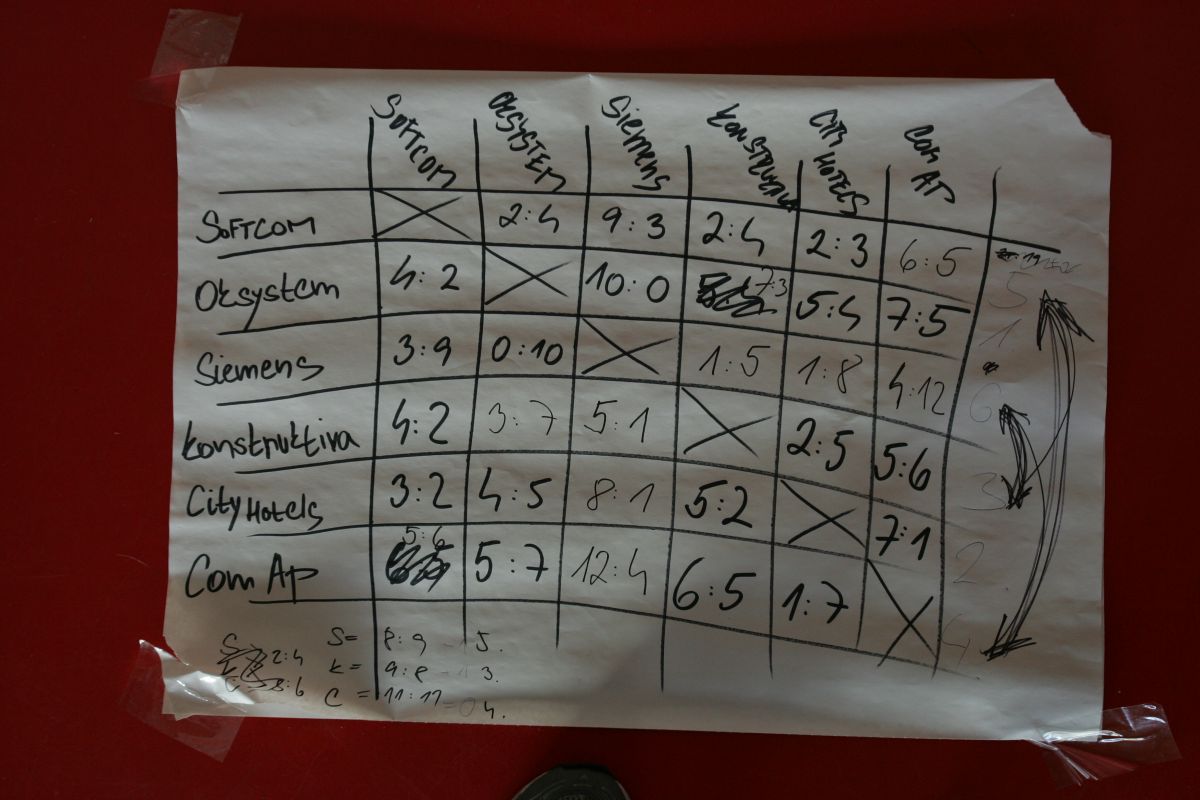 SOFTCOM OKSYSTEM Siemens KONSTRUKTIVA CITY HOTELS COM AP
SOFTCOM 2:4 9:3 2:4 2:3 6:5
Oksystem 4:2 10:0 7:3 5:4 7:5 5
Siemens 3:9 0:10 1:5 1:8 4:12 1.
konstruktiva 4:2 3:7 5:1 2:5 5:6 6
City Hotels 3:2 4:5 8:1 5:2 7:1 3
5:6
Com Ap 5:7 12:4 6:5 1:7 2
4
S 2:4 S= 8:9 - 1 5.
K= 9:8 - 1 3.
C 8:6 C = 11:11 = 0 4.